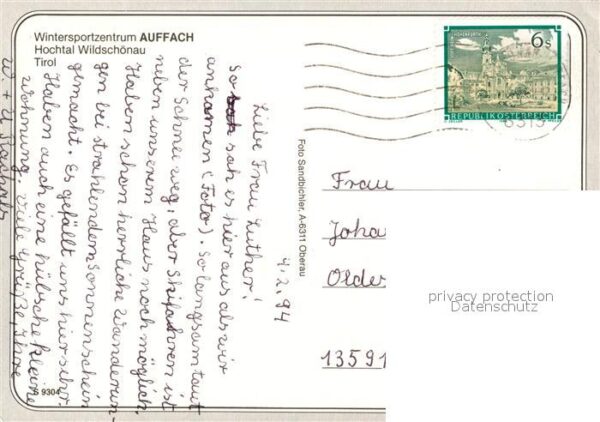 Wintersportzentrum AUFFACH
Hochtal Wildschönau
Tirol
4.2.94
Liebe Frau Luther!
So sah es hier aus als wir
ankamen (Foto). So langsam taut
der Schnee weg, aber Skifahren ist
neben unserem Haus noch möglich.
Haben schon herrliche Wanderun-
gen bei strahlendem Sonnenschein
gemacht. Es gefällt uns hier sehr.
Haben auch eine hübsche kleine
Wohnung. Viele Grüße, Ihre
W + U
A 9304
Foto Sandbichler, A-6311 Oberau
6 s
REPUBLIK ÖSTERREICH
6313
Frau
Joha
Olde
13591
privacy protection
Datenschutz